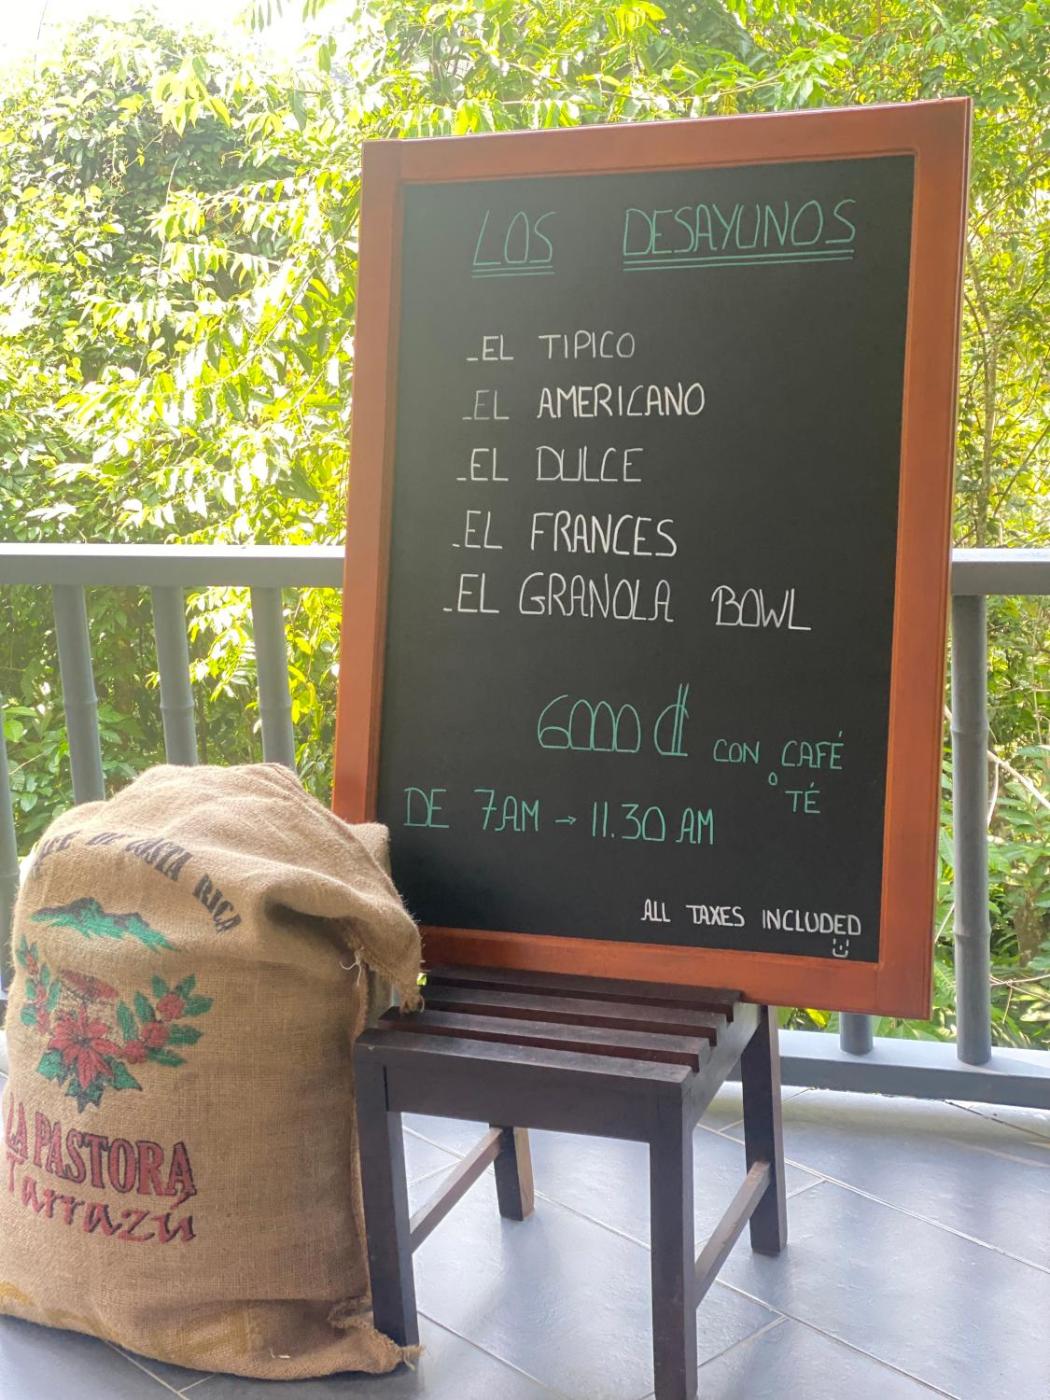 LOS DESAYUNOS
-EL TIPICO
-EL AMERICANO
-EL DULCE
-EL FRANCES
-EL GRANOLA BOWL
6000 ₡ CON CAFÉ
O
TÉ
DE 7AM → 11.30 AM
ALL TAXES INCLUDED
DE COSTA RICA
LA PASTORA
Tarrazú